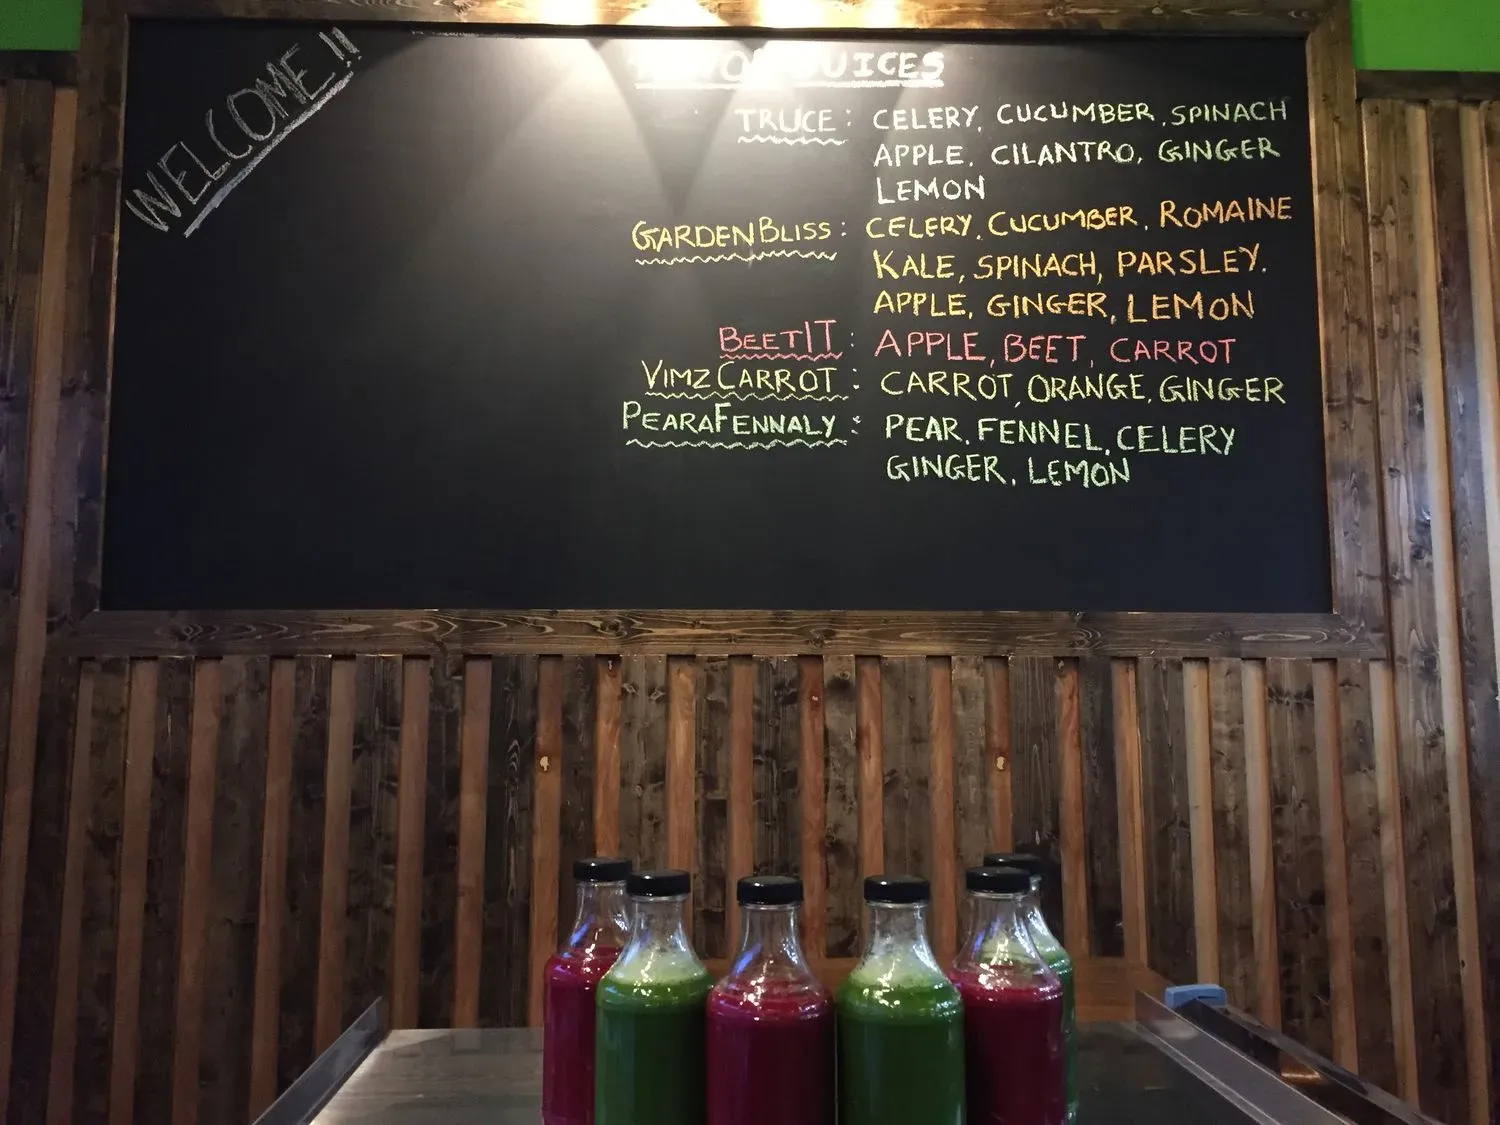 WELCOME!!
JUICES
TRUCE: CELERY, CUCUMBER, SPINACH
APPLE, CILANTRO, GINGER
LEMON
GARDENBLISS: CELERY, CUCUMBER, ROMAINE
KALE, SPINACH, PARSLEY.
APPLE, GINGER, LEMON
BEETIT: APPLE, BEET, CARROT
VIMZCARROT: CARROT, ORANGE, GINGER
PEARAFENNALY: PEAR, FENNEL, CELERY
GINGER, LEMON